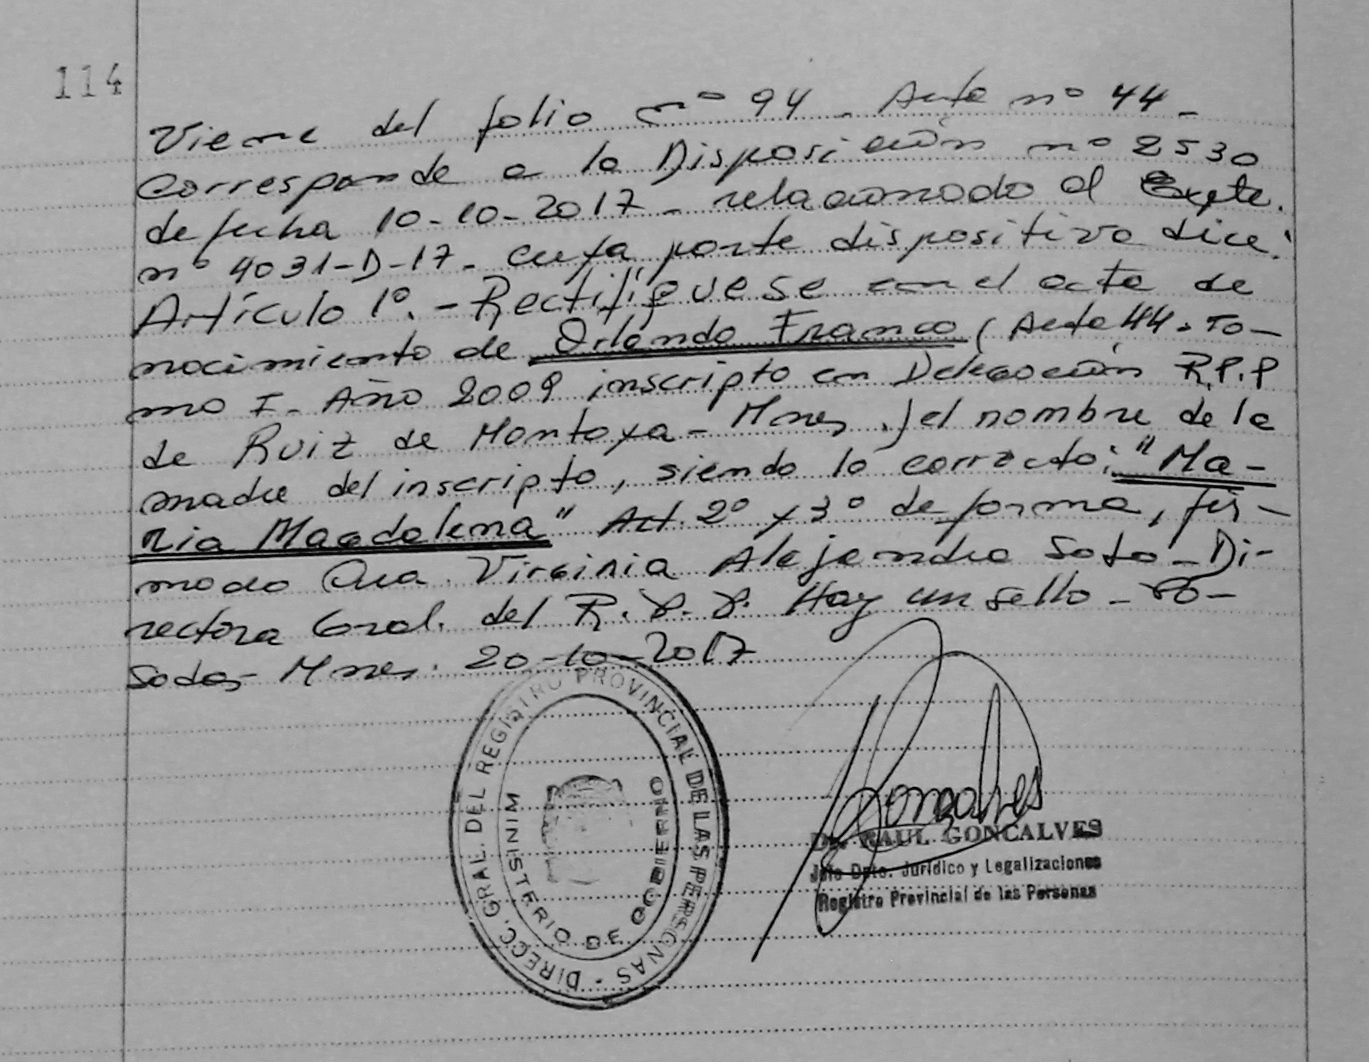 114
Viene del folio nº 94 - Acta nº 44 -
Corresponde a la Disposición nº 2530
de fecha 10-10-2017 - relacionado al Expte.
nº 4031-D-17 - cuya parte dispositiva dice:
Artículo 1º. - Rectifíquese en el acta de
nacimiento de Orlando Franco (Acta 44. To-
mo I - Año 2009 inscripto en Delegación R.P.P
de Ruiz de Montoya - Mnes.) el nombre de la
madre del inscripto, siendo lo correcto: "Ma-
ria Magdalena" Art. 2º y 3º de forma, fir-
mado Dra. Virginia Alejandra Soto - Di-
rectora Gral. del R.P.P. Hay un sello - Po-
sadas - Mnes. 20-10-2017
DIRECC. GRAL. DEL REGISTRO PROVINCIAL DE LAS PERSONAS -
MINISTERIO DE GOBIERNO
Goncalves
Dr. RAUL GONCALVES
Jefe Dpto. Jurídico y Legalizaciones
Registro Provincial de las Personas